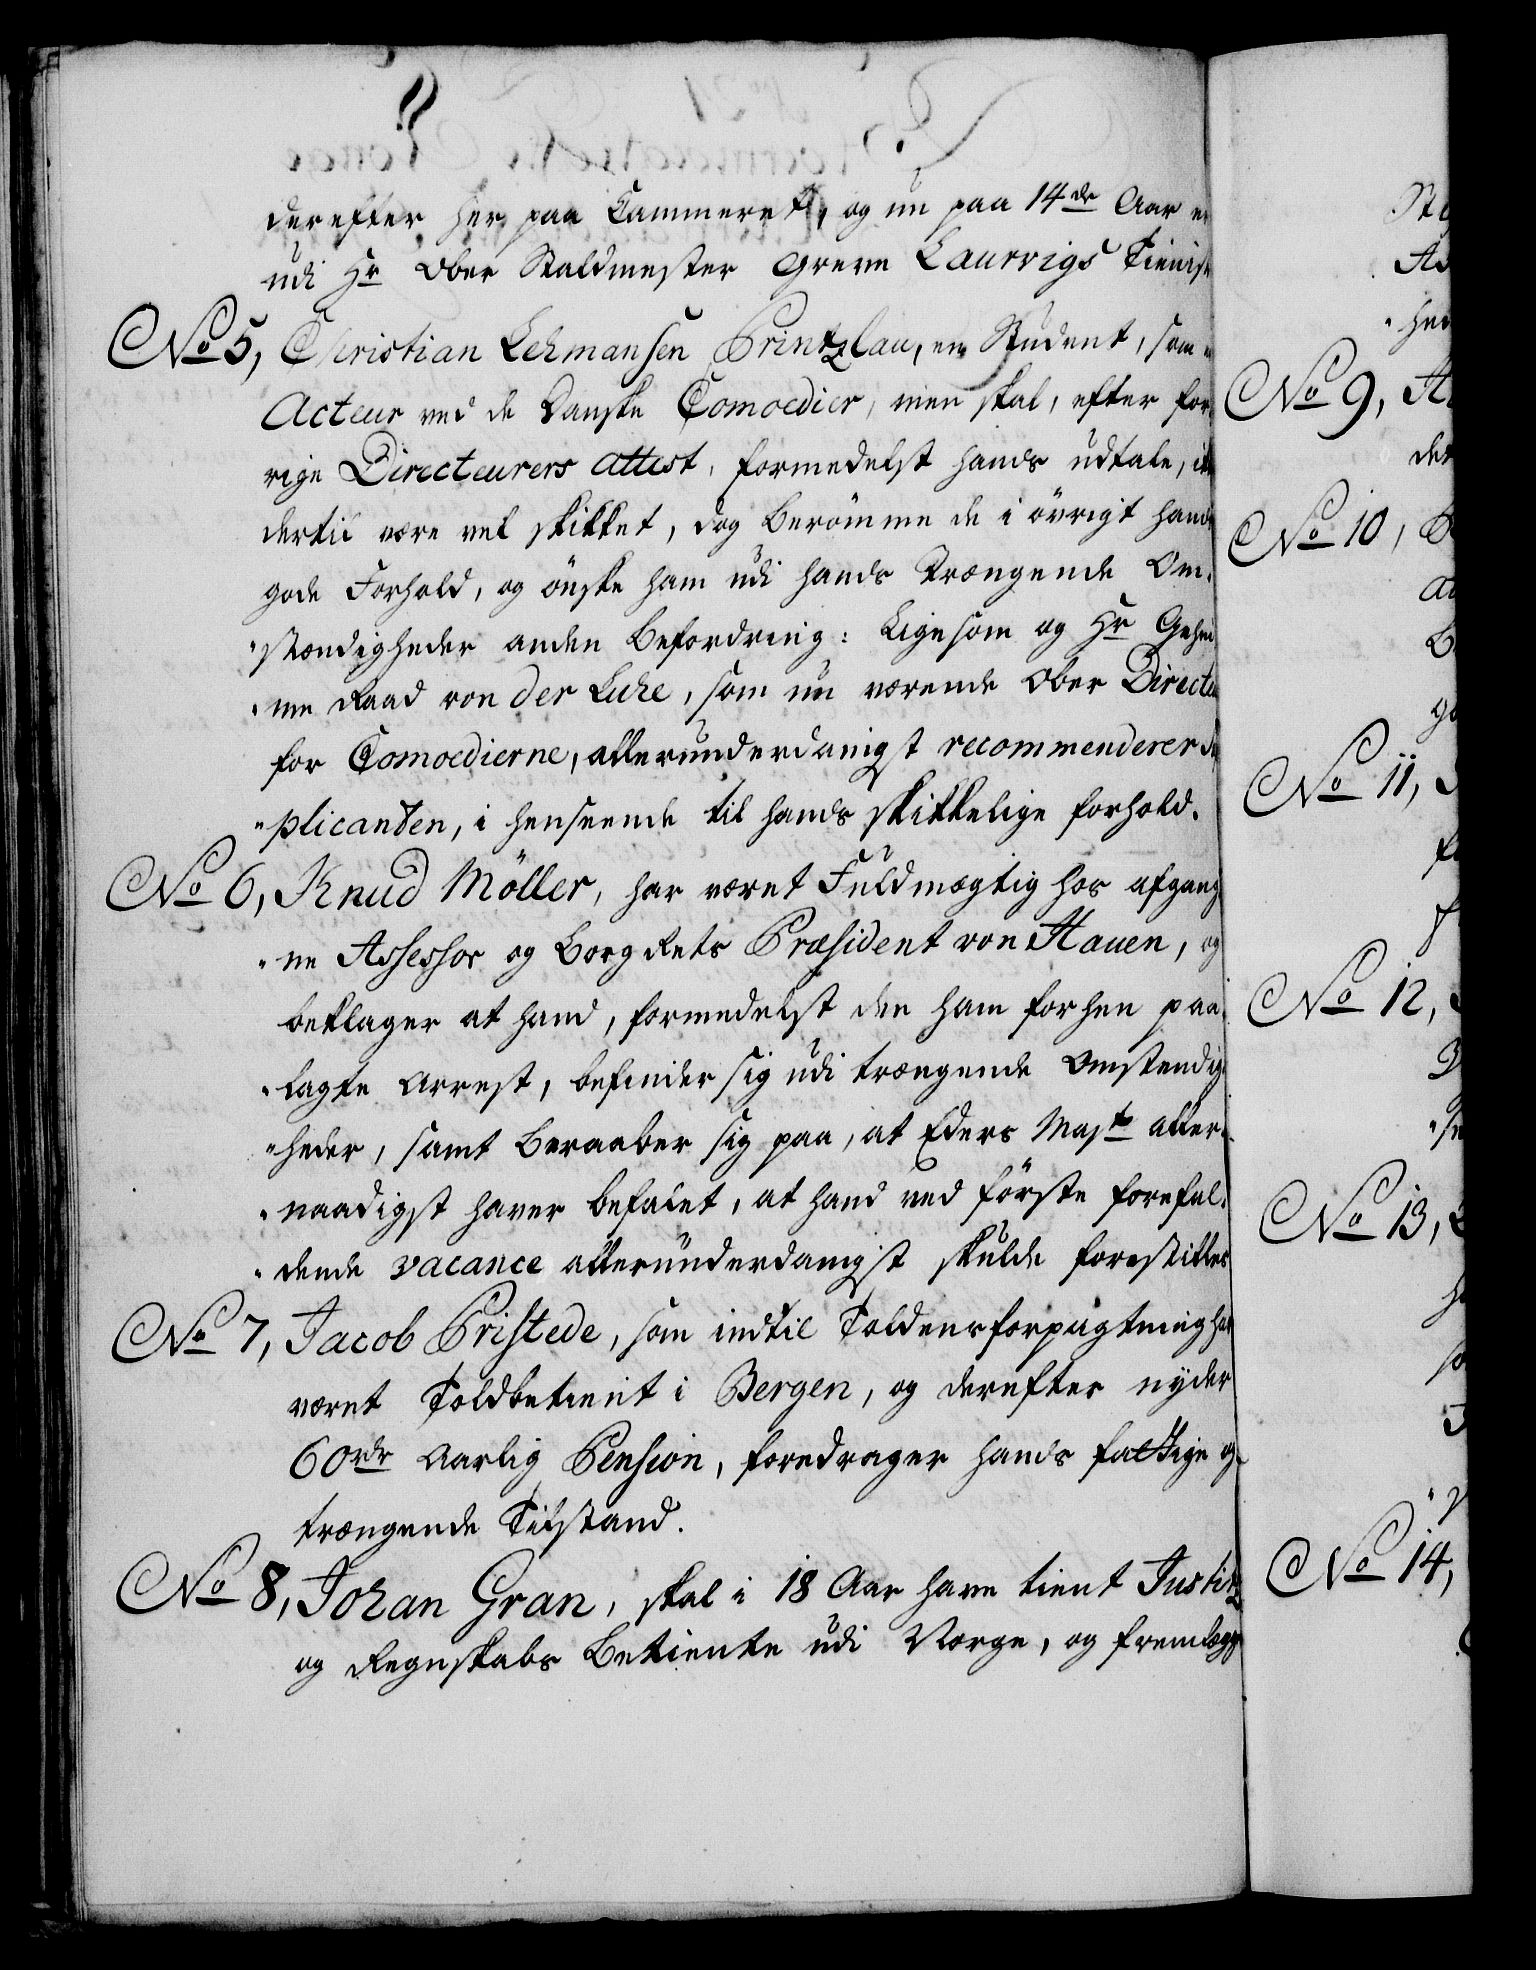 derefter her paa Cammeret, og nu paa 14de Aar
udi Hr Ober Staldmester Greve Laurvigs Tienist
No 5, Christian Lehmansen Printzlau, en Student, som
Acteur ved de Danske Comoedier, men skal, efter for¬
rige Directeurers attest, formedelst hands udtale,
dertil være vel skikket, dog berömme de i övrigt hands
gode Forhold, og önske ham udi hands Trængende Om¬
stændigheder anden Befordring: Ligesom og Hr Gehei¬
me Raad von der Luhe, som nu værende Ober Directeur
for Comoedierne, allerunderdanigst recommenderer
plicanten, i henseende til hands skikkelige forhold.
No 6, Knud Möller, har været Fuldmægtig hos afgang¬
ne Assessor og Borg Rets Præsident von Haven, og
beklager at hand, formedelst den ham forhen paa¬
lagte Arrest, befinder sig udi trængende Omstendig¬
heder, samt beraaber sig paa, at Eders Mayt aller¬
naadigst haver befalet, at hand ved förste forefal¬
dende vacance allerunderdanigst skulde forestilles
No 7, Jacob Pristede, som indtil Toldens forpagtning har
været Toldbetient i Bergen, og derefter nyder
60rdr aarlig Pension, foredrager hands fattige og
trængende Tilstand.
No 8, Johan Gran, skal i 18 Aar have tient Justitz
og Regnskabs Betiente udi Norge, og fremlegge
No 9,
No 10,
No 11,
No 12,
No 13,
No 14,